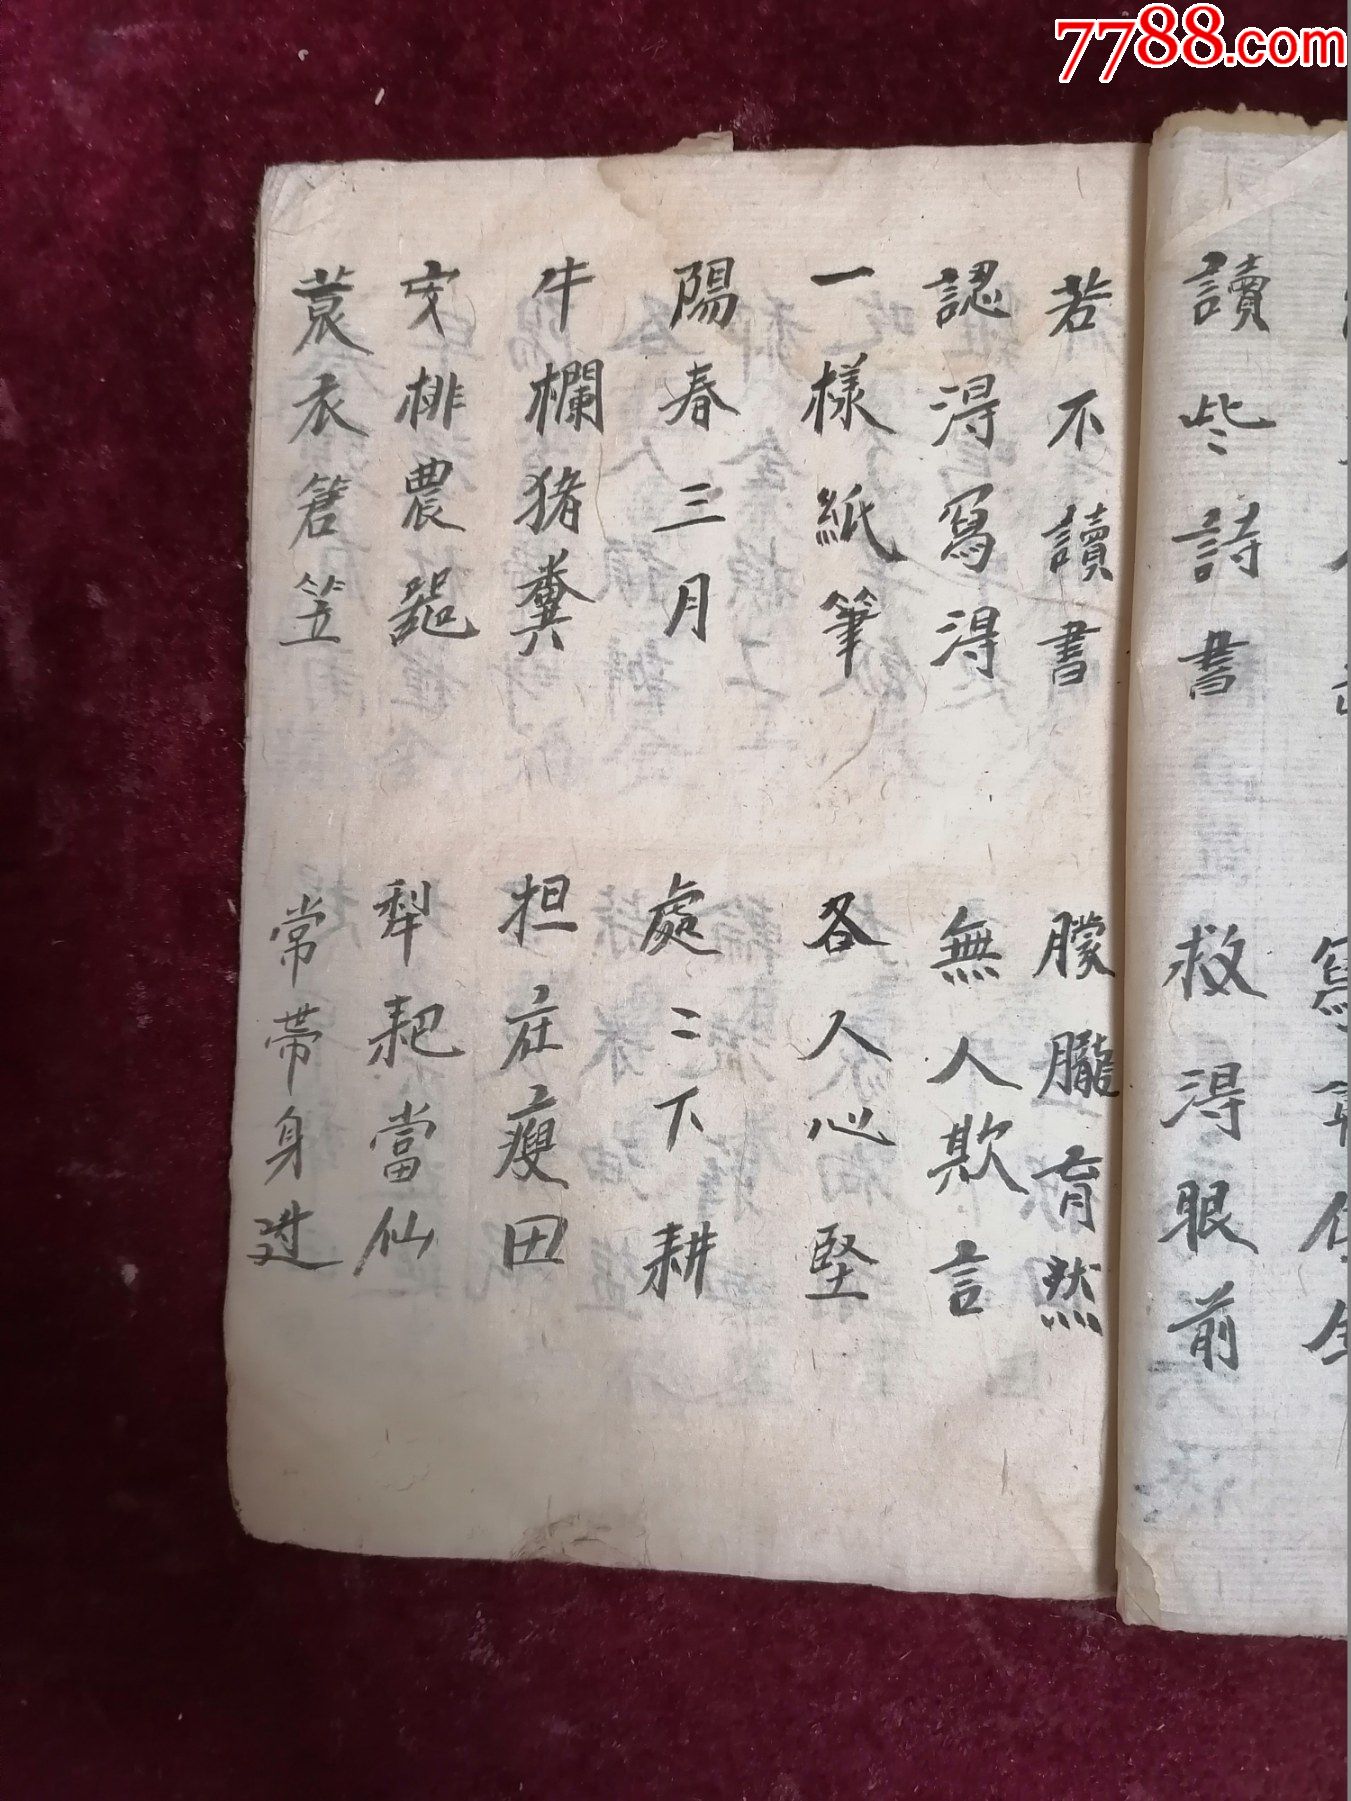 7788.com
讀些詩書 救得眼前
若不讀書 朦朧育然
認得寫得 無人欺言
一樣紙筆 各人心堅
陽春三月 處二下耕
牛欄猪糞 担在瘦田
農器 犁耙當仙
蓑衣箬笠 常帶身边